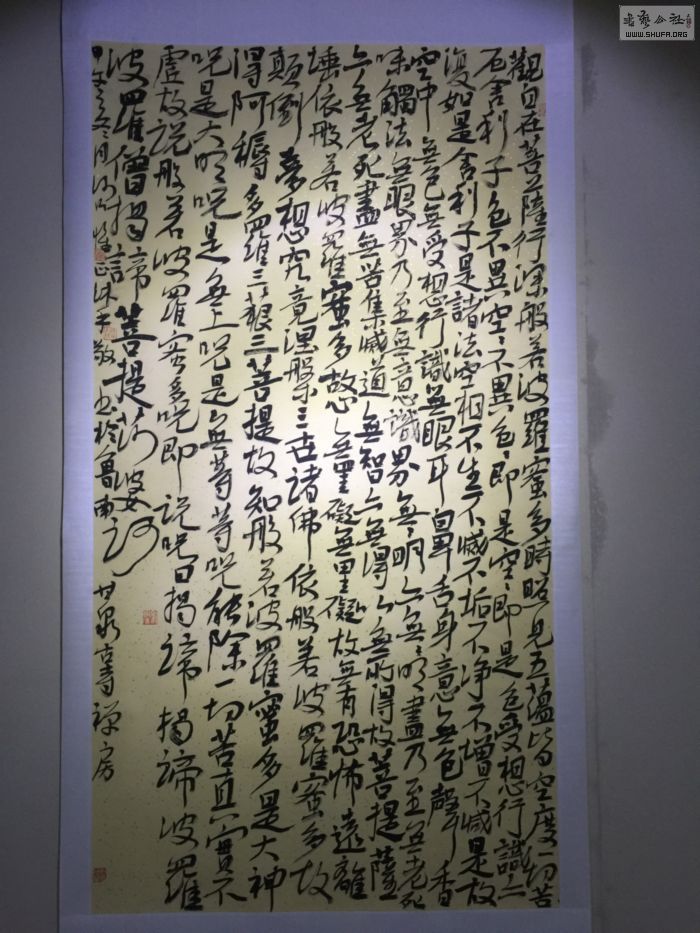 觀自在菩薩行深般若波羅蜜多時照見五蘊皆空度一切苦
厄舍利子色不異空空不異色色即是空空即是色受想行識亦
復如是舍利子是諸法空相不生不滅不垢不净不增不減是故
空中無色無受想行識無眼耳鼻舌身意無色聲香
味觸法無眼界乃至無意識界無無明亦無無明盡乃至無老死
亦無老死盡無苦集滅道無智亦無得以無所得故菩提薩
埵依般若波羅蜜多故心無罣礙無罣礙故無有恐怖遠離
顛倒夢想究竟涅槃三世諸佛依般若波羅蜜多故
得阿耨多羅三藐三菩提故知般若波羅蜜多是大神
咒是大明咒是無上咒是無等等咒能除一切苦真實不
虛故說般若波羅蜜多咒即說咒曰揭諦揭諦波羅
波羅僧揭諦菩提
書於魯南甘泉古寺禪房
书艺公社
WWW.SHUFA.ORG